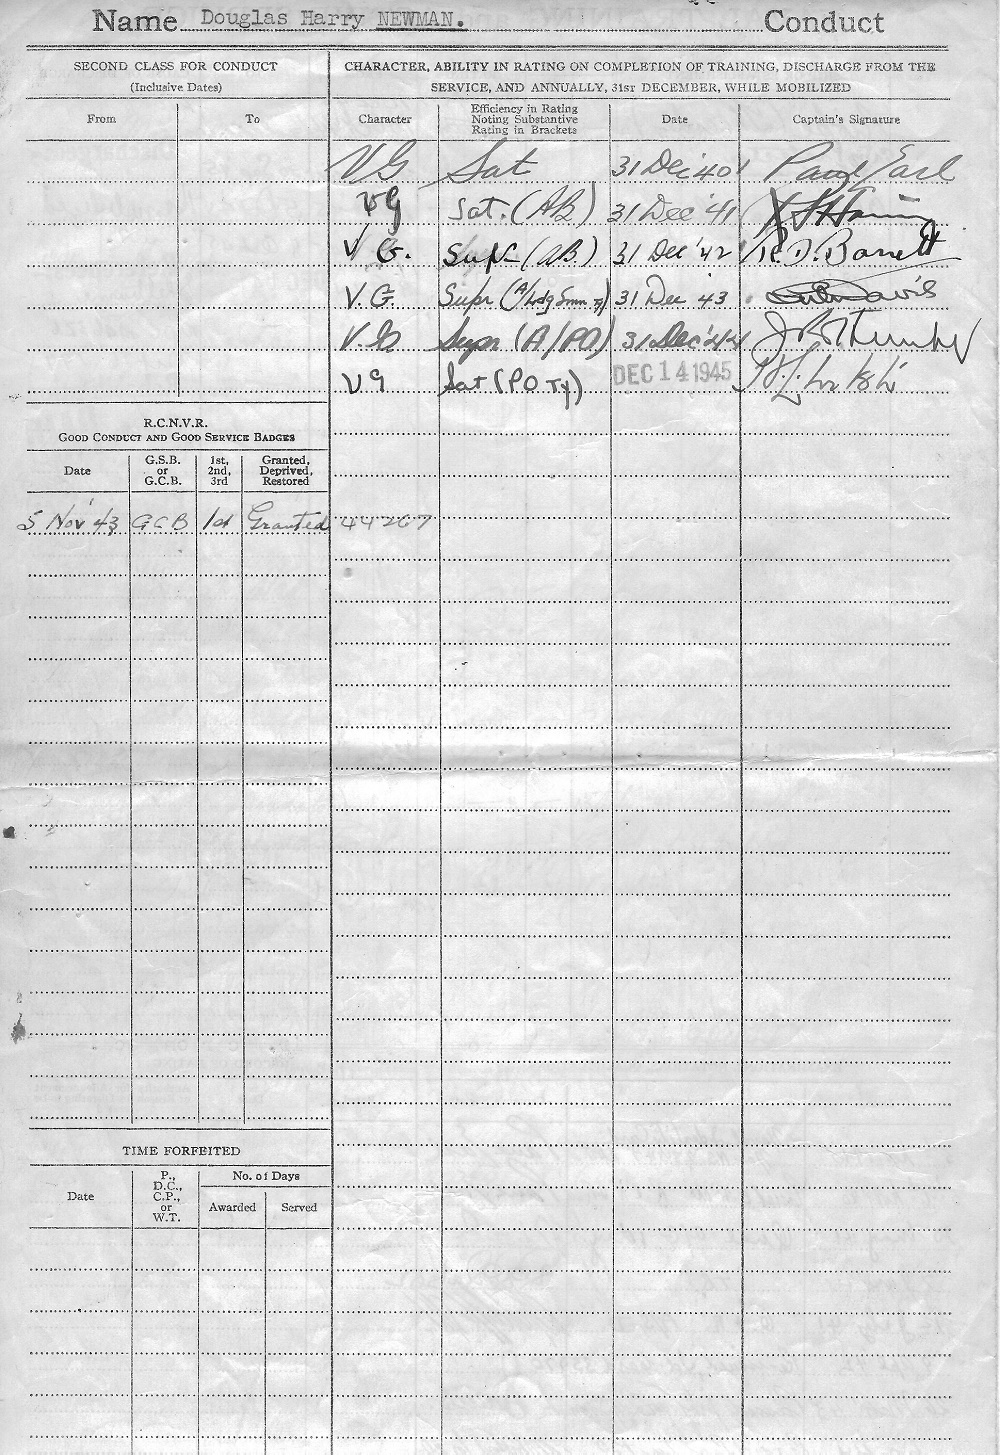 Name Douglas Harry NEWMAN. Conduct
SECOND CLASS FOR CONDUCT
(Inclusive Dates)
From To
CHARACTER, ABILITY IN RATING ON COMPLETION OF TRAINING, DISCHARGE FROM THE
SERVICE, AND ANNUALLY, 31ST DECEMBER, WHILE MOBILIZED
Character
Efficiency in Rating
Noting Substantive
Rating in Brackets
Date
Captain's Signature
VG Sat 31 Dec '40 Earl
VG Sat. (AB) 31 Dec '41
V G. Supr (AB) 31 Dec '42 R.D. Barrett
V.G. Supr (A/Ldg Smn Ty) 31 Dec 43 Davis
V.G Supr (A/PO) 31 Dec '44
VG Sat (PO Ty) DEC 14 1945
R.C.N.V.R.
GOOD CONDUCT AND GOOD SERVICE BADGES
Date
G.S.B.
or
G.C.B.
1st,
2nd,
3rd
Granted,
Deprived,
Restored
5 Nov '43 GCB 1st Granted 44267
TIME FORFEITED
Date
P.,
D.C.,
C.P.,
or
W.T.
No. of Days
Awarded Served